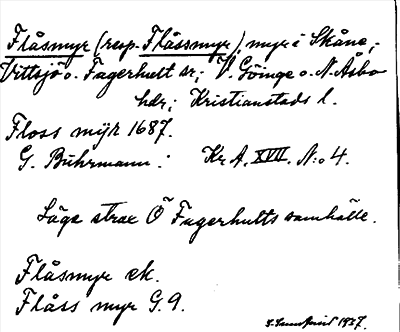 Flåsmyr (resp. Flåssmyr), myr i Skåne,
Vittsjö o. Fagerhult sr; V. Göinge o. N. Åsbo
hdr; Kristianstads l.
Floss mÿr 1687.
G. Buhrmann: Kr. A. XVII. N:o 4.
Läge strax Ö Fagerhults samhälle.
Flåsmyr ek.
Flåss myr G. 9.
1937.